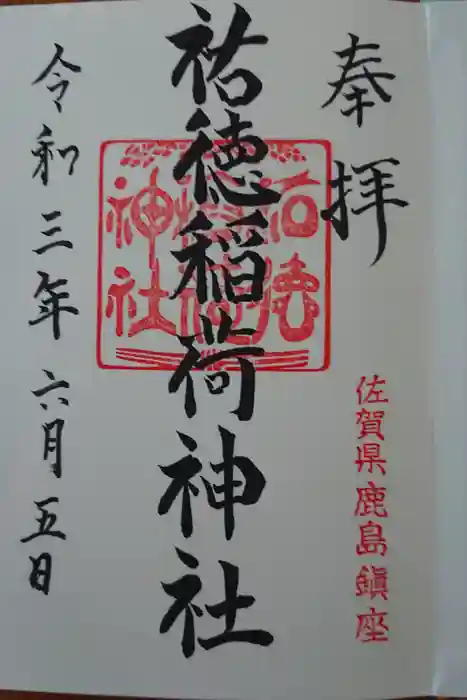 奉拝
佐賀県鹿島鎮座
祐徳稲荷神社
祐徳
稲荷
神社
令和三年六月五日